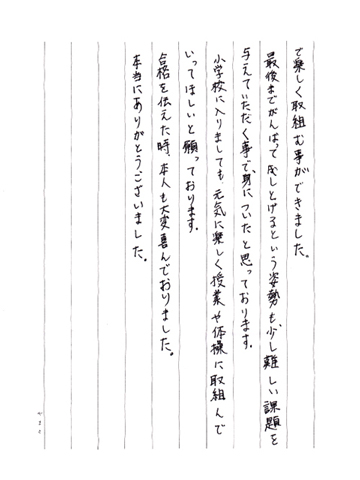 で楽しく取組む事ができました。
最後までがんばって成しとげるという姿勢も、少し難しい課題を
与えていただく事で、身についたと思っております。
小学校に入りましても元気に楽しく授業や体操に取組んで
いってほしいと願っております。
合格を伝えた時、本人も大変喜んでおりました。
本当にありがとうございました。